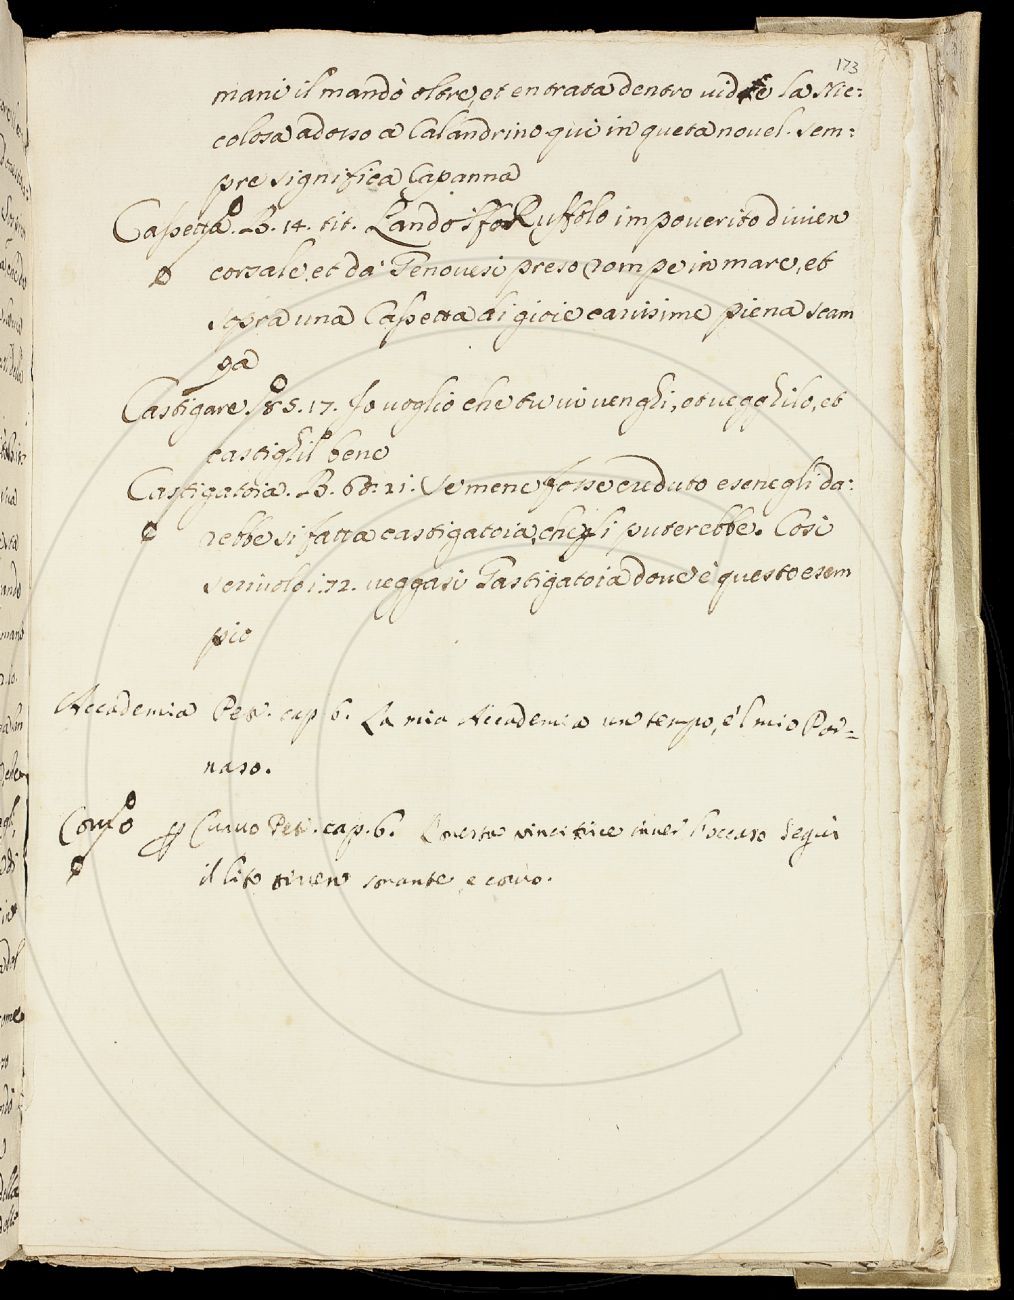 173
mani il mandò oltre, et entrata dentro vide la Nic=
colosa adosso a Calandrino. qui in questa novel. sem=
pre significa Capanna
Cassetta. B. 14. tit. Landolfo Ruffolo impoverito divien
corsale, et da Genovesi preso rompe in mare, et
sopra una Cassetta di gioie carissime piena scam
pa
Castigare. 85. 17. Io voglio che tu vi venghi, et vegghilo, et
castighil bene
Castigatoia. B. 68. 21. Se me ne fosse creduto e se ne gli da:
rebbe si fatta castigatoia, che gli puterebbe. Cosi
72. veggasi Gastigatoia dove è questo esem
pio
Accademia Pet. cap 6. La mia Accademia un tempo, e'l mio Par=
naso.
Corvo Curvo Pet. cap. 6. Questa vincitrice inver l'occaso segui
il lito tirren sonante e corvo.